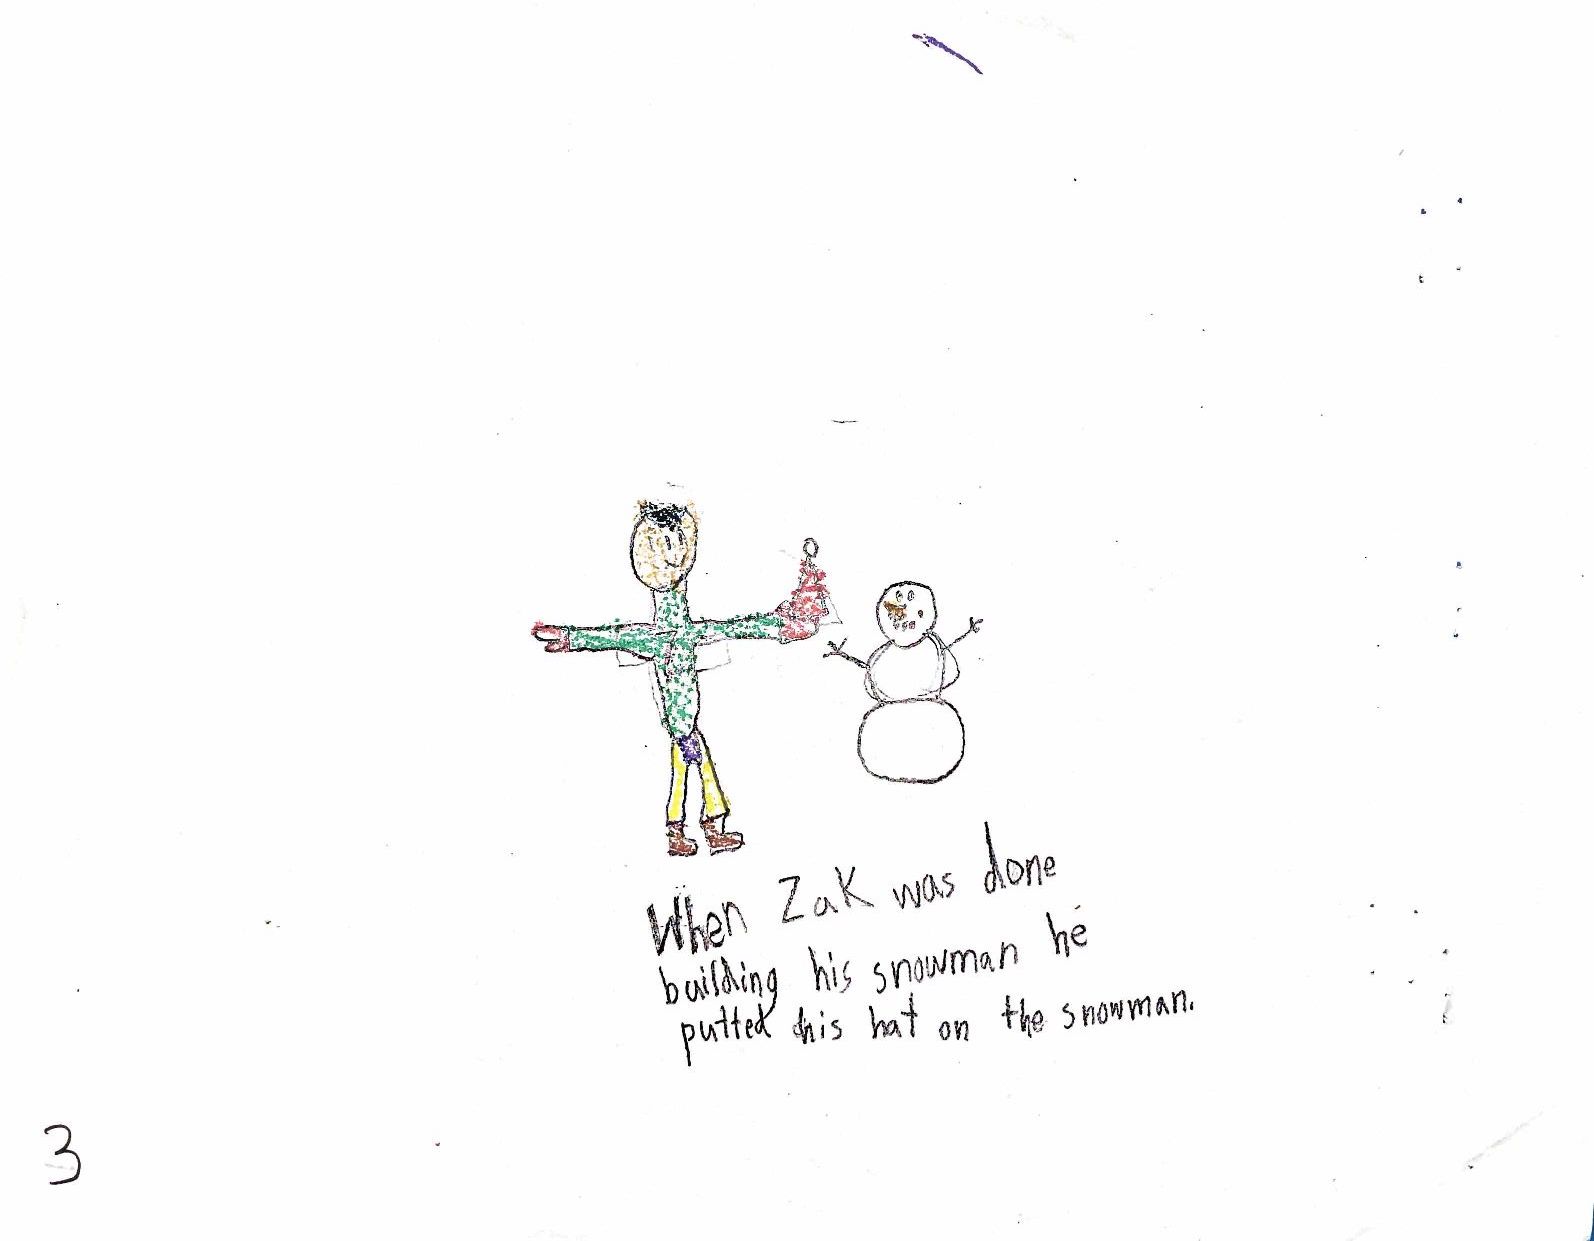 When Zak was done
building his snowman he
putted his hat on the snowman.
3